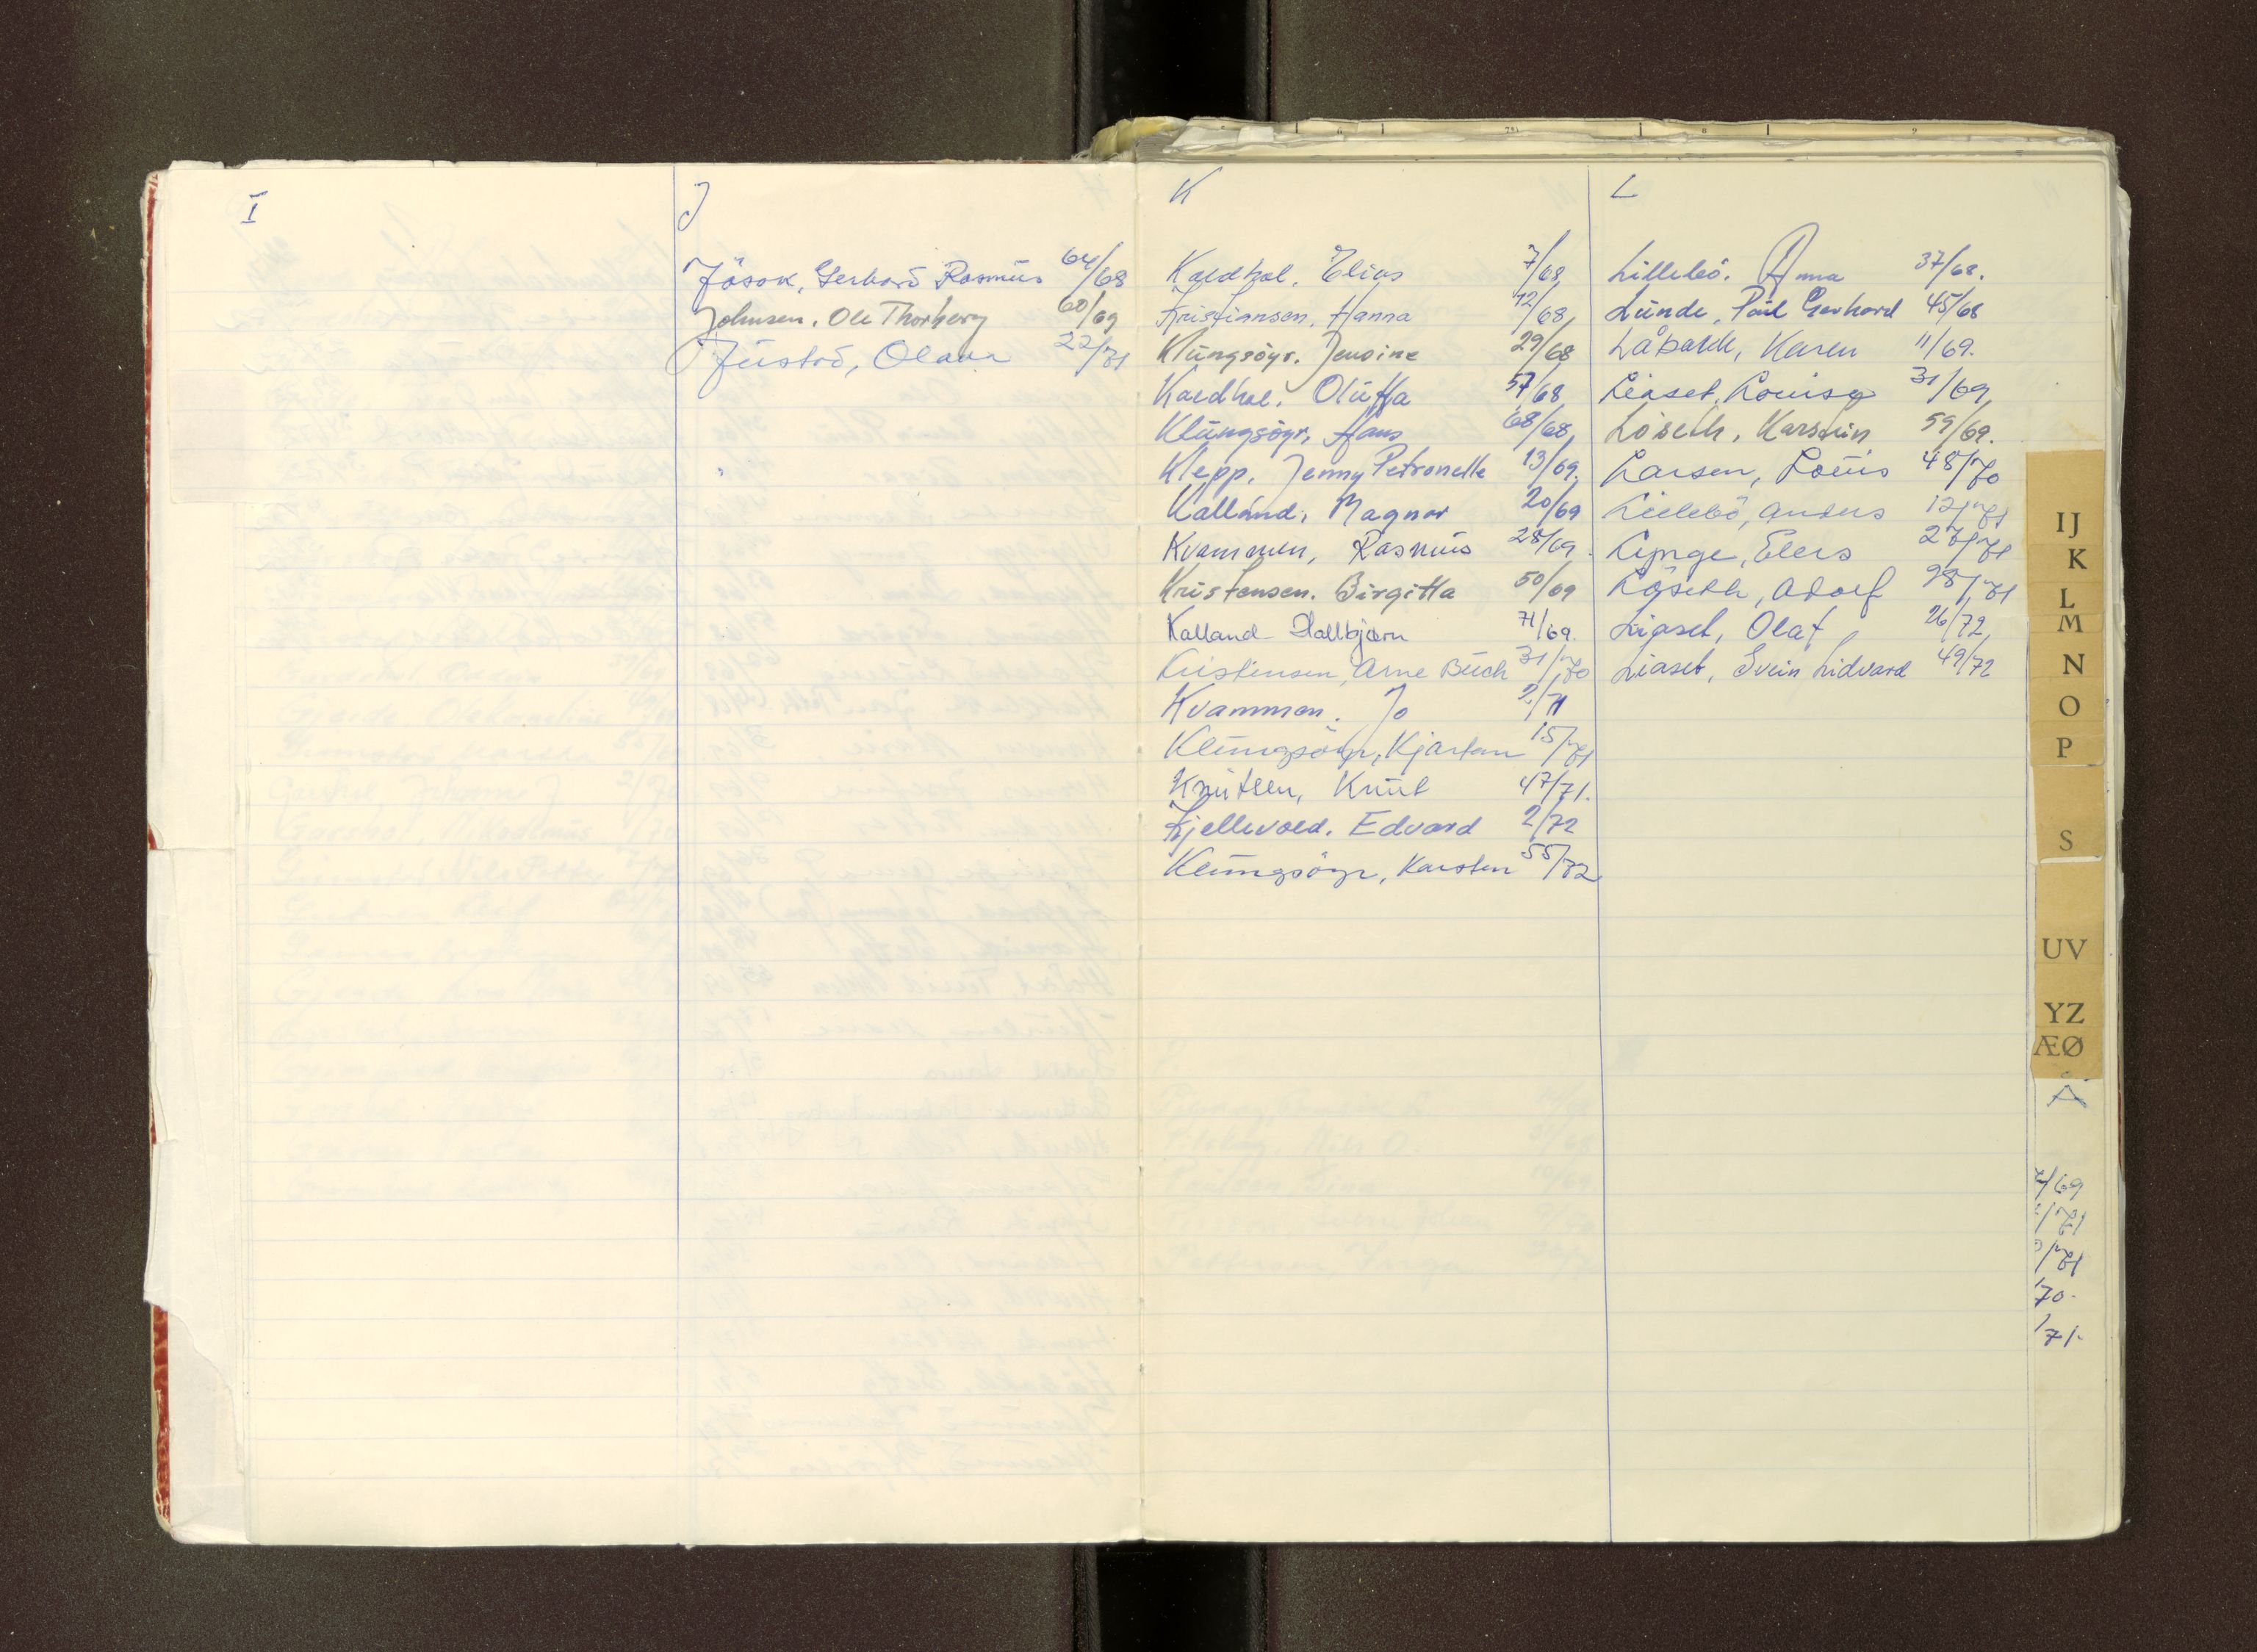 I
J
Jösok, Gerhard Rasmus 64/68
Johnsen, Ole Thorberg 60/69
Justad, Olava 22/71
K
Kaldhol, Elias 7/68
Kristiansen, Hanna 12/68
Klungsöyr, Jensine 29/68
Kaldhol, Oluffa 57/68
Klungsöyr, Hans 68/68
Klepp, Jenny Petronelle 13/69.
Kalland, Magnar 20/69
Kvammen, Rasmus 28/69
Kristensen. Birgitta 50/69
Kalland Hallbjørn 71/69.
Kristensen, Arne Buch 31/70
Kvammen. Jo 2/71
Klungsöyr, Kjartan 15/71
Knutsen, Knut 47/71.
Kjellevold. Edvard 2/72
Klungsöyr, Karsten 55/72
L
Lillebö. Anna 37/68.
Lunde, Paul Gerhard 45/68
Låbakk, Karen 11/69.
Liaset, Lovisa 31/69
Löseth, Karstein 59/69.
Larsen, Louis 48/70
Lillebö, Anders 12/71
Lynge, Elers 27/71
Löseth, Adolf 28/71
Liaset, Olaf 26/72
Liaset, Svein Lidvard 49/72
IJ
K
L
M
N
O
P
S
UV
YZ
ÆØ
Å
/69
/71
/71
/70.
/71.